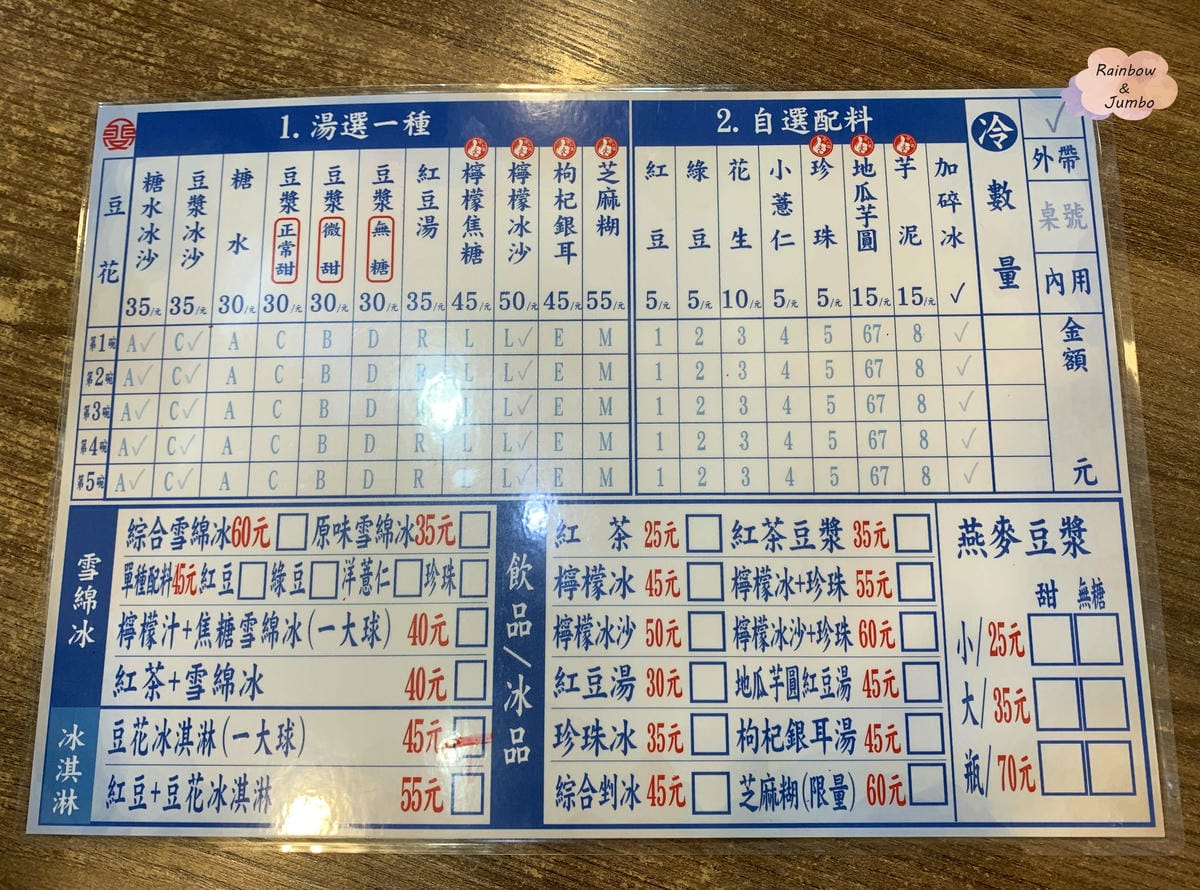 Rainbow
&
Jumbo
1. 湯選一種
2. 自選配料
冷 數量
✓ 外帶
桌號
內用
豆花
糖水冰沙 35/元
豆漿冰沙 35/元
糖水 30/元
豆漿 正常甜 30/元
豆漿 微甜 30/元
豆漿 無糖 30/元
紅豆湯 35/元
檸檬焦糖 45/元
檸檬冰沙 50/元
枸杞銀耳 45/元
芝麻糊 55/元
紅豆 5/元
綠豆 5/元
花生 10/元
小薏仁 5/元
珍珠 5/元
地瓜芋圓 15/元
芋泥 15/元
加碎冰 ✓
第1碗 A✓ C✓ A C B D R L L✓ E M 1 2 3 4 5 67 8 ✓
第2碗 A✓ C✓ A C B D R L L✓ E M 1 2 3 4 5 67 8 ✓
第3碗 A✓ C✓ A C B D R L L✓ E M 1 2 3 4 5 67 8 ✓
第4碗 A✓ C✓ A C B D R L L✓ E M 1 2 3 4 5 67 8 ✓
第5碗 A✓ C✓ A C B D R L L✓ E M 1 2 3 4 5 67 8 ✓
金額
元
雪綿冰
綜合雪綿冰60元 原味雪綿冰35元
單種配料45元 紅豆 綠豆 洋薏仁 珍珠
檸檬汁+焦糖雪綿冰(一大球) 40元
紅茶+雪綿冰 40元
冰淇淋
豆花冰淇淋(一大球) 45元
紅豆+豆花冰淇淋 55元
飲品/冰品
紅茶 25元 紅茶豆漿 35元
檸檬冰 45元 檸檬冰+珍珠 55元
檸檬冰沙 50元 檸檬冰沙+珍珠 60元
紅豆湯 30元 地瓜芋圓紅豆湯 45元
珍珠冰 35元 枸杞銀耳湯 45元
綜合剉冰 45元 芝麻糊(限量) 60元
燕麥豆漿
甜 無糖
小/25元
大/35元
瓶/70元